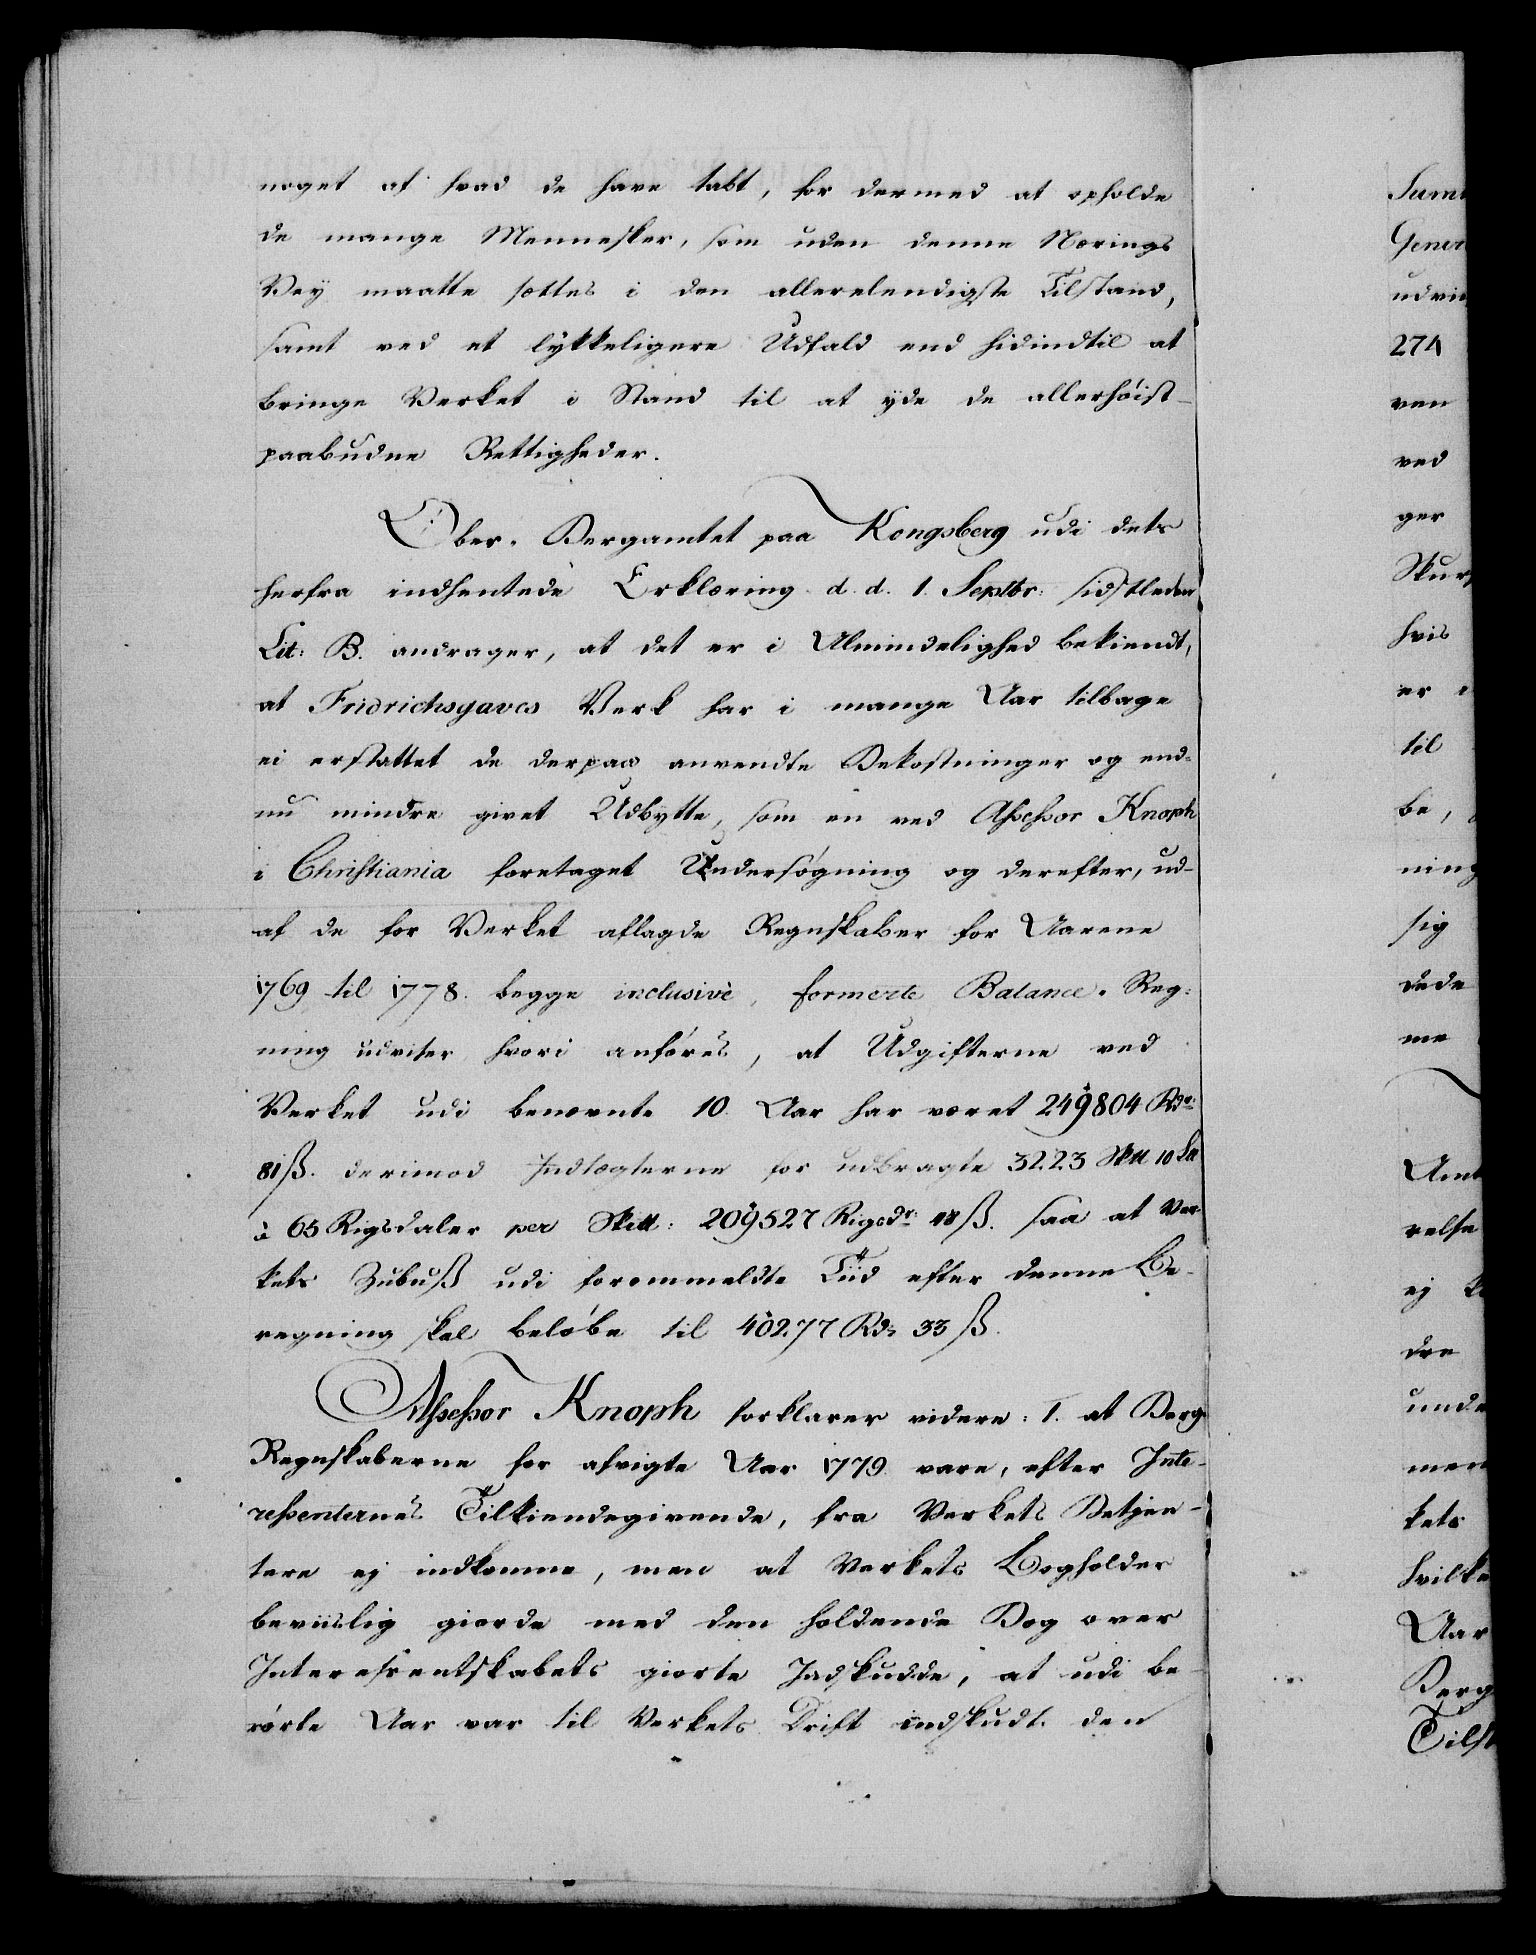 noget af hvad de have tabt, for dermed at opholde
de mange Mennesker, som uden denne Nærings
Vey maatte sættes i den allerelendigste Tilstand,
samt ved et lykkeligere Udfald end hidindtil at
bringe Verket i Stand til at yde de allerhøist-
paabudne Rettigheder.
Ober-Bergamtet paa Kongsberg udi dets
herfra indhentede Erklæring d. d. 1. Septbr: sidstleden
Lit: B. andrager, at det er i Almindelighed bekiendt,
at Fridrichsgaves Verk har i mange Aar tilbage
ei erstattet de derpaa anvendte Bekostninger og end-
nu mindre givet Udbytte, som en ved Assessor Knoph
i Christiania foretaget Undersøgning og derefter, ud-
af de for Verket aflagde Regnskaber for Aarene
1769 til 1778. begge inclusive, formerte Balance-Reg-
ning udviser, hvori anføres, at Udgifterne ved
Verket udi benævnte 10. Aar har været 249804 Rdr:
81 ß. derimod Indtægterne for udbragte 3223 Sktt 10 Ltt
à 65 Rigsdaler per Skitt: 209527 Rigsdr: 48 ß. saa at Ver-
kets Zubuß udi forommeldte Tiid efter denne Be-
regning skal beløbe til 40277 Rdr 33 ß.
Assessor Knoph forklarer videre: 1. at Berg-
Regnskaberne for afvigte Aar 1779 vare, efter Inte-
ressenternes Tilkiendegivende, fra Verkets Betjen-
tere ej indkomne, men at Verkets Bogholder
beviislig giorde med den holdende Bog over
Interessentskabets giorte Indskudde, at udi be-
rørte Aar var til Verkets Drift indskudt den
Sum
Gener
udvi
274
ven
ved
ger
Skur
hvis
er
til
be,
ning
sig
dede
me
Amt
relse
ej
dre
unde
men
kets
hvilke
Aar
Berg
Tilst